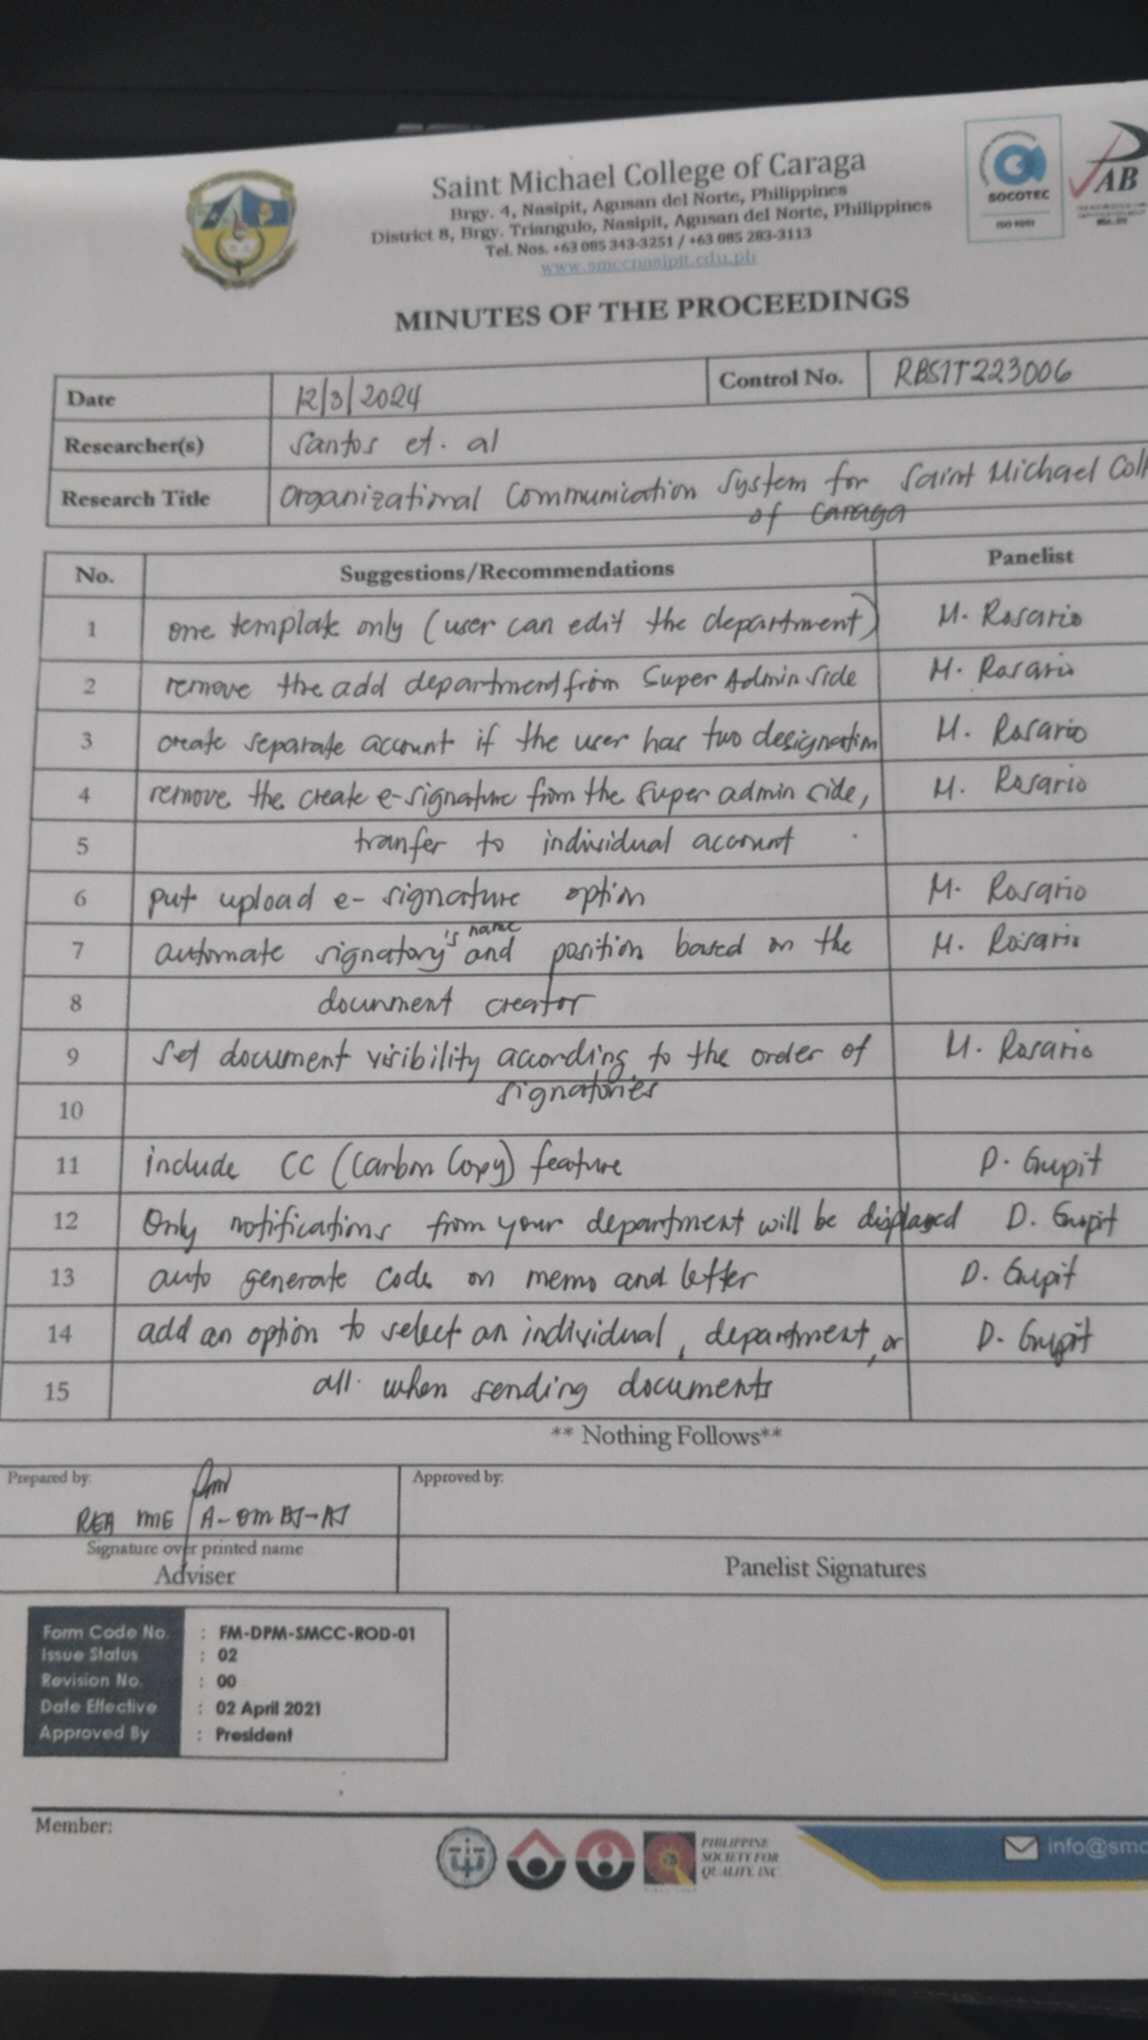 Saint Michael College of Caraga
Brgy. 4, Nasipit, Agusan del Norte, Philippines
District 8, Brgy. Triangulo, Nasipit, Agusan del Norte, Philippines
Tel. Nos. +63 085 343-3251 / +63 085 283-3113
www.smccnasipit.edu.ph
SOCOTEC
ISO 9001
PAB
MINUTES OF THE PROCEEDINGS
Date 12/3/2024 Control No. RBSIT223006
Researcher(s) Santos et. al
Research Title Organizational Communication System for Saint Michael Coll
of Caraga
No. Suggestions/Recommendations Panelist
1 one template only (user can edit the department) M. Rosario
2 remove the add department from Super Admin side M. Rosario
3 create separate account if the user has two designation M. Rosario
4 remove the create e-signature from the super admin side, M. Rosario
5 tranfer to individual account
6 put upload e-signature option M. Rosario
7 automate signatory's name and position based on the M. Rosario
8 document creator
9 set document visibility according to the order of M. Rosario
10 signatories
11 include CC (Carbon Copy) feature D. Gupit
12 Only notifications from your department will be displayed D. Gupit
13 auto generate code on memo and letter D. Gupit
14 add an option to select an individual, department, or D. Gupit
15 all when sending documents
** Nothing Follows**
Prepared by: Approved by:
Signature over printed name
Adviser Panelist Signatures
Form Code No. : FM-DPM-SMCC-ROD-01
Issue Status : 02
Revision No. : 00
Date Effective : 02 April 2021
Approved By : President
Member:
PHILIPPINE
SOCIETY FOR
QUALITY, INC
info@smc